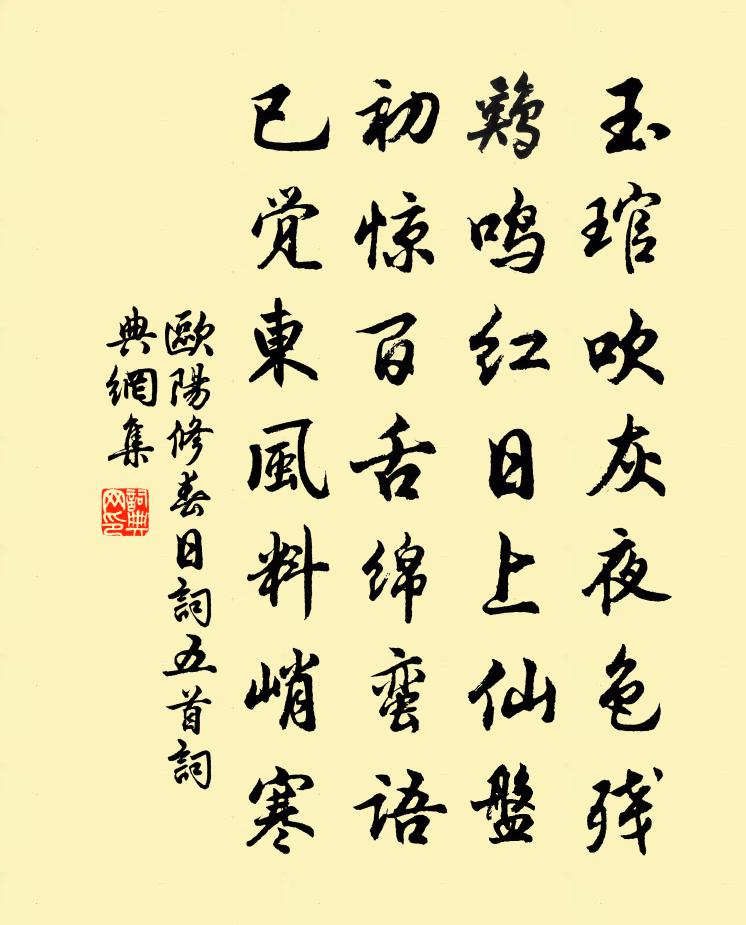 玉琯吹灰夜色残
鶏鸣红日上仙盤
初惊百舌绵蛮语
已觉東風料峭寒
歐陽修春日詞五首詞
典網集
詞典
网印